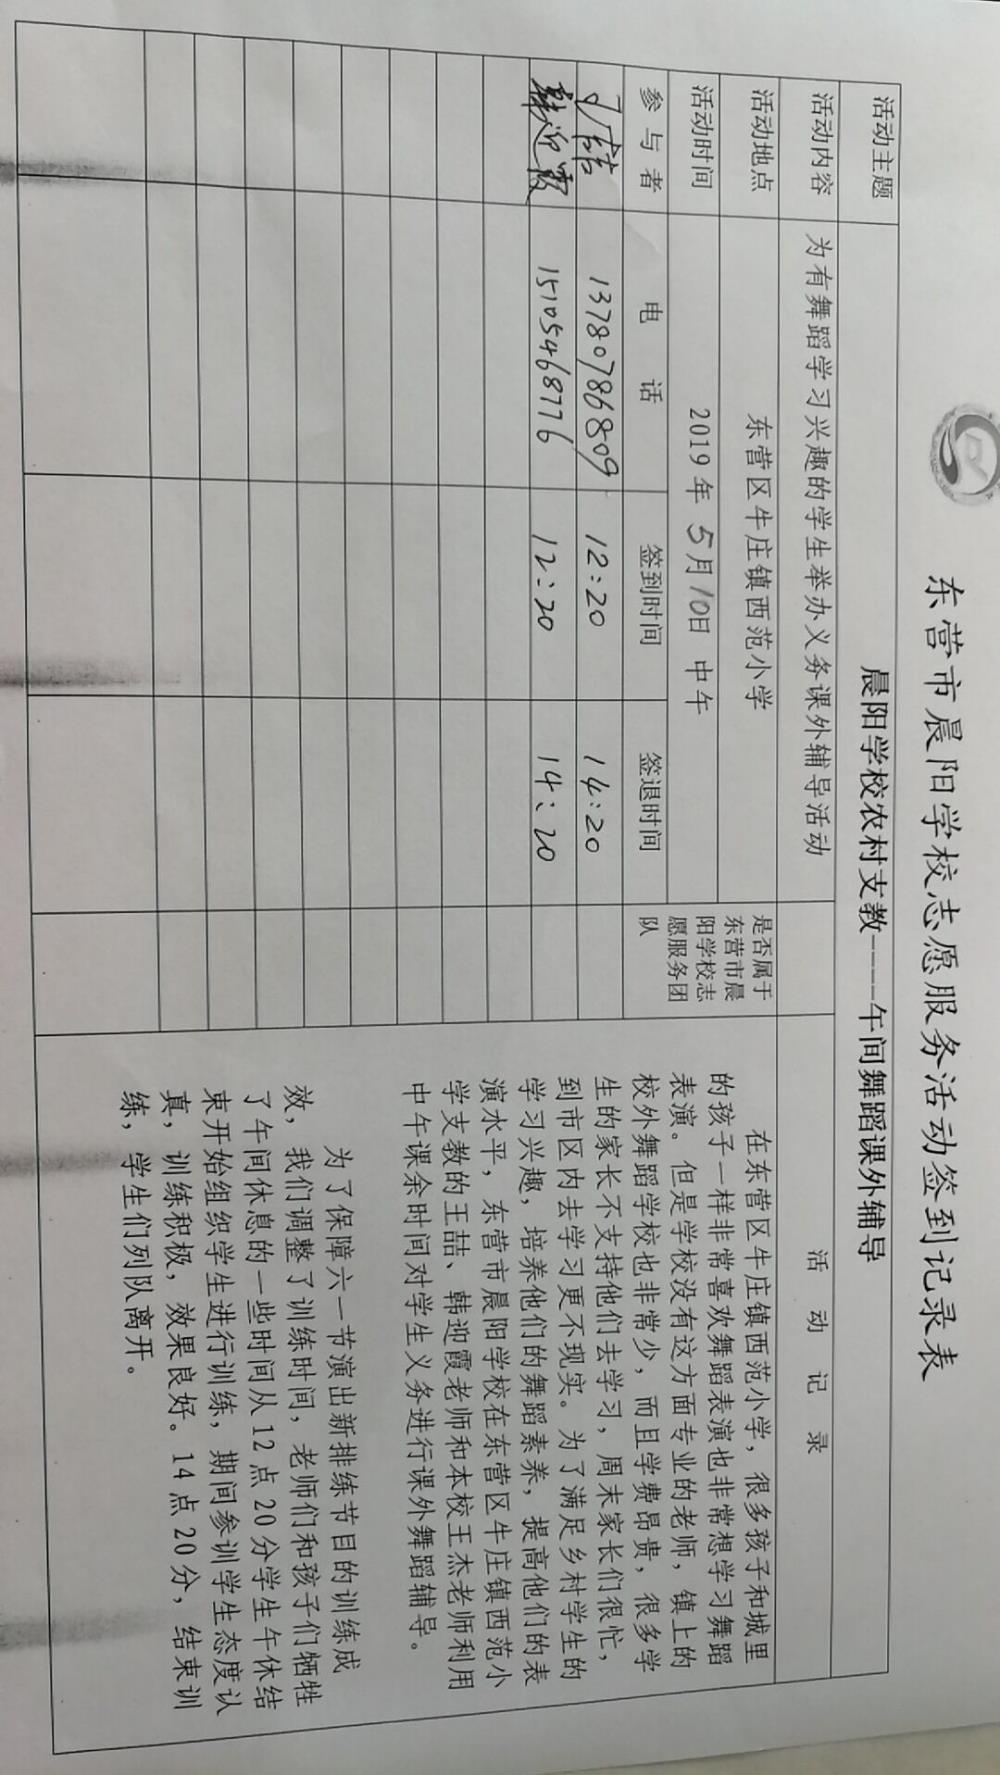 东营市晨阳学校志愿服务活动签到记录表
活动主题 晨阳学校农村支教----午间舞蹈课外辅导
活动内容 为有舞蹈学习兴趣的学生举办义务课外辅导活动
活动地点 东营区牛庄镇西范小学
活动时间 2019年5月10日 中午
是否属于
东营市晨
阳学校志
愿服务团
队
参与者 电话 签到时间 签退时间
王喆 13780786809 12:20 14:20
韩迎霞 15105468776 12:20 14:20
活动记录
在东营区牛庄镇西范小学，很多孩子和城里
的孩子一样非常喜欢舞蹈表演也非常想学习舞蹈
表演。但是学校没有这方面专业的老师，镇上的
校外舞蹈学校也非常少，而且学费昂贵，很多学
生的家长不支持他们去学习，周末家长们很忙，
到市区内去学习更不现实。为了满足乡村学生的
学习兴趣，培养他们的舞蹈素养，提高他们的表
演水平，东营市晨阳学校在东营区牛庄镇西范小
学支教的王喆、韩迎霞老师和本校王杰老师利用
中午课余时间对学生义务进行课外舞蹈辅导。
为了保障六一节演出新排练节目的训练成
效，我们调整了训练时间，老师们和孩子们牺牲
了午间休息的一些时间从12点20分学生午休结
束开始组织学生进行训练，期间参训学生态度认
真，训练积极，效果良好。14点20分，结束训
练，学生们列队离开。